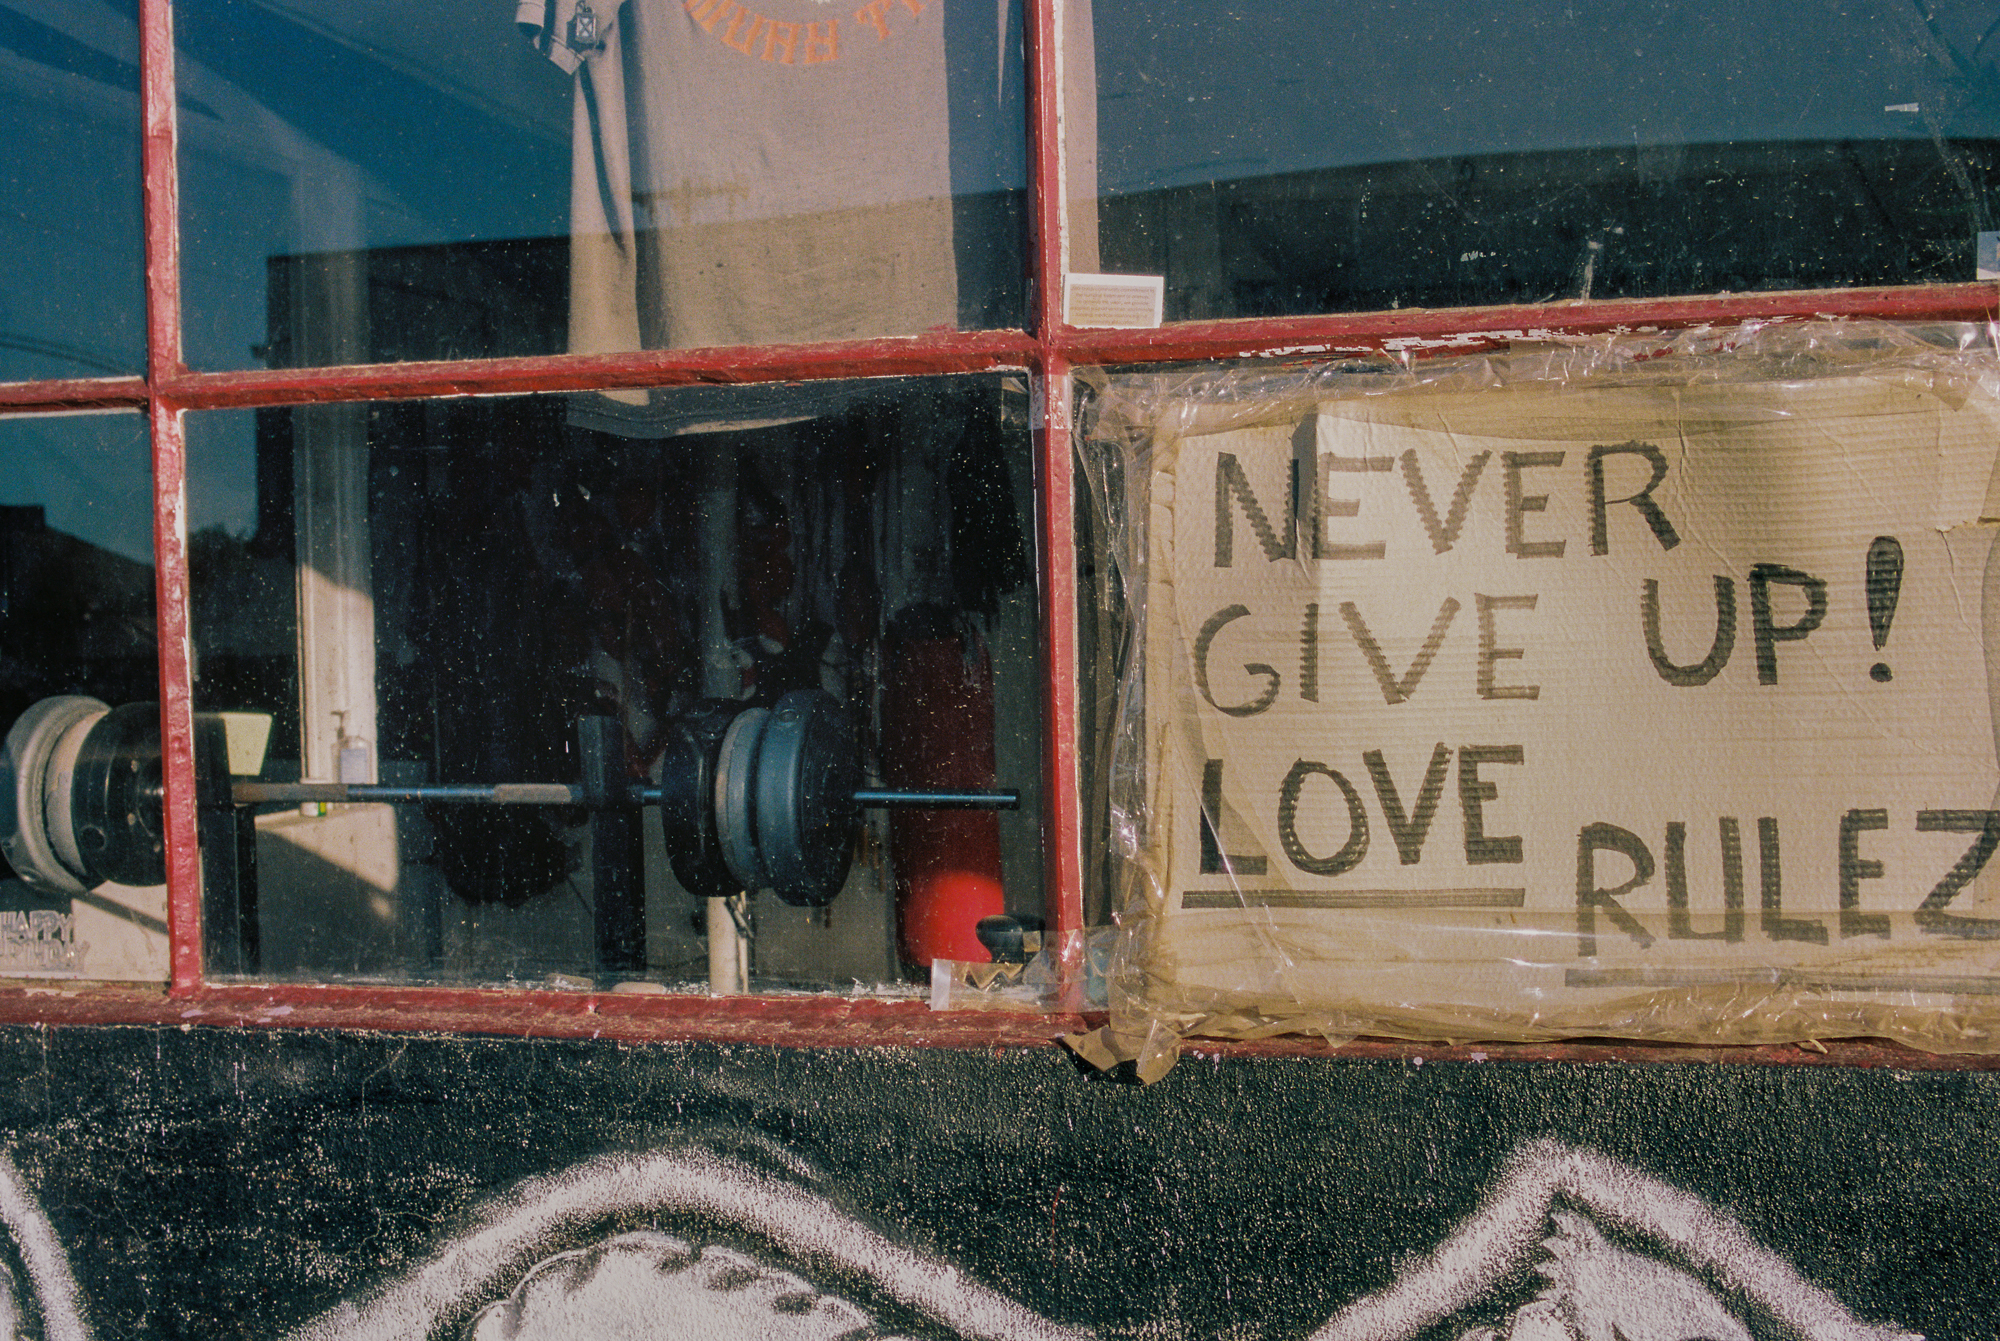 NEVER
GIVE UP!
LOVE
RULEZ
HAPPY